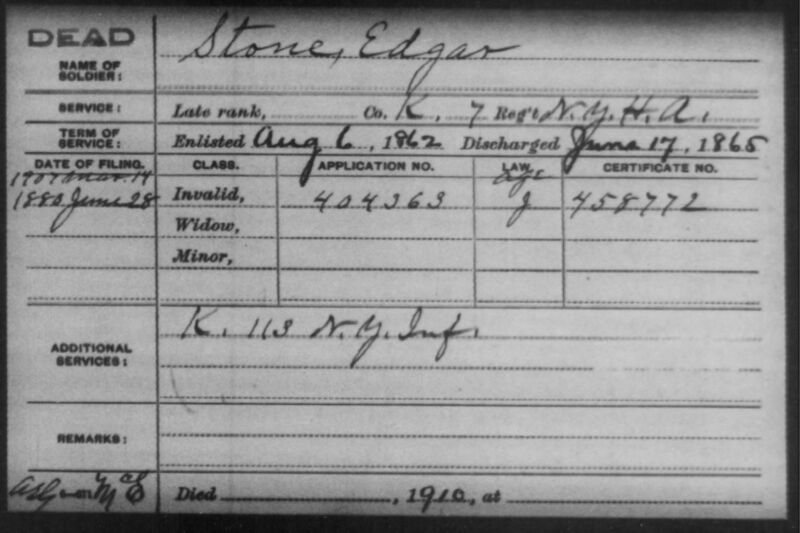 DEAD
NAME OF SOLDIER: Stone, Edgar
SERVICE: Late rank, Co. K, 7 Reg't N.Y.H.A.
TERM OF SERVICE: Enlisted Aug 6, 1862 Discharged June 17, 1865
DATE OF FILING. CLASS. APPLICATION NO. LAW. CERTIFICATE NO.
1907 Mar. 14 Age
1880 June 28 Invalid, 404363 J 458772
Widow,
Minor,
ADDITIONAL SERVICES: K. 113 N.Y. Inf.
REMARKS:
Died , 1910, at